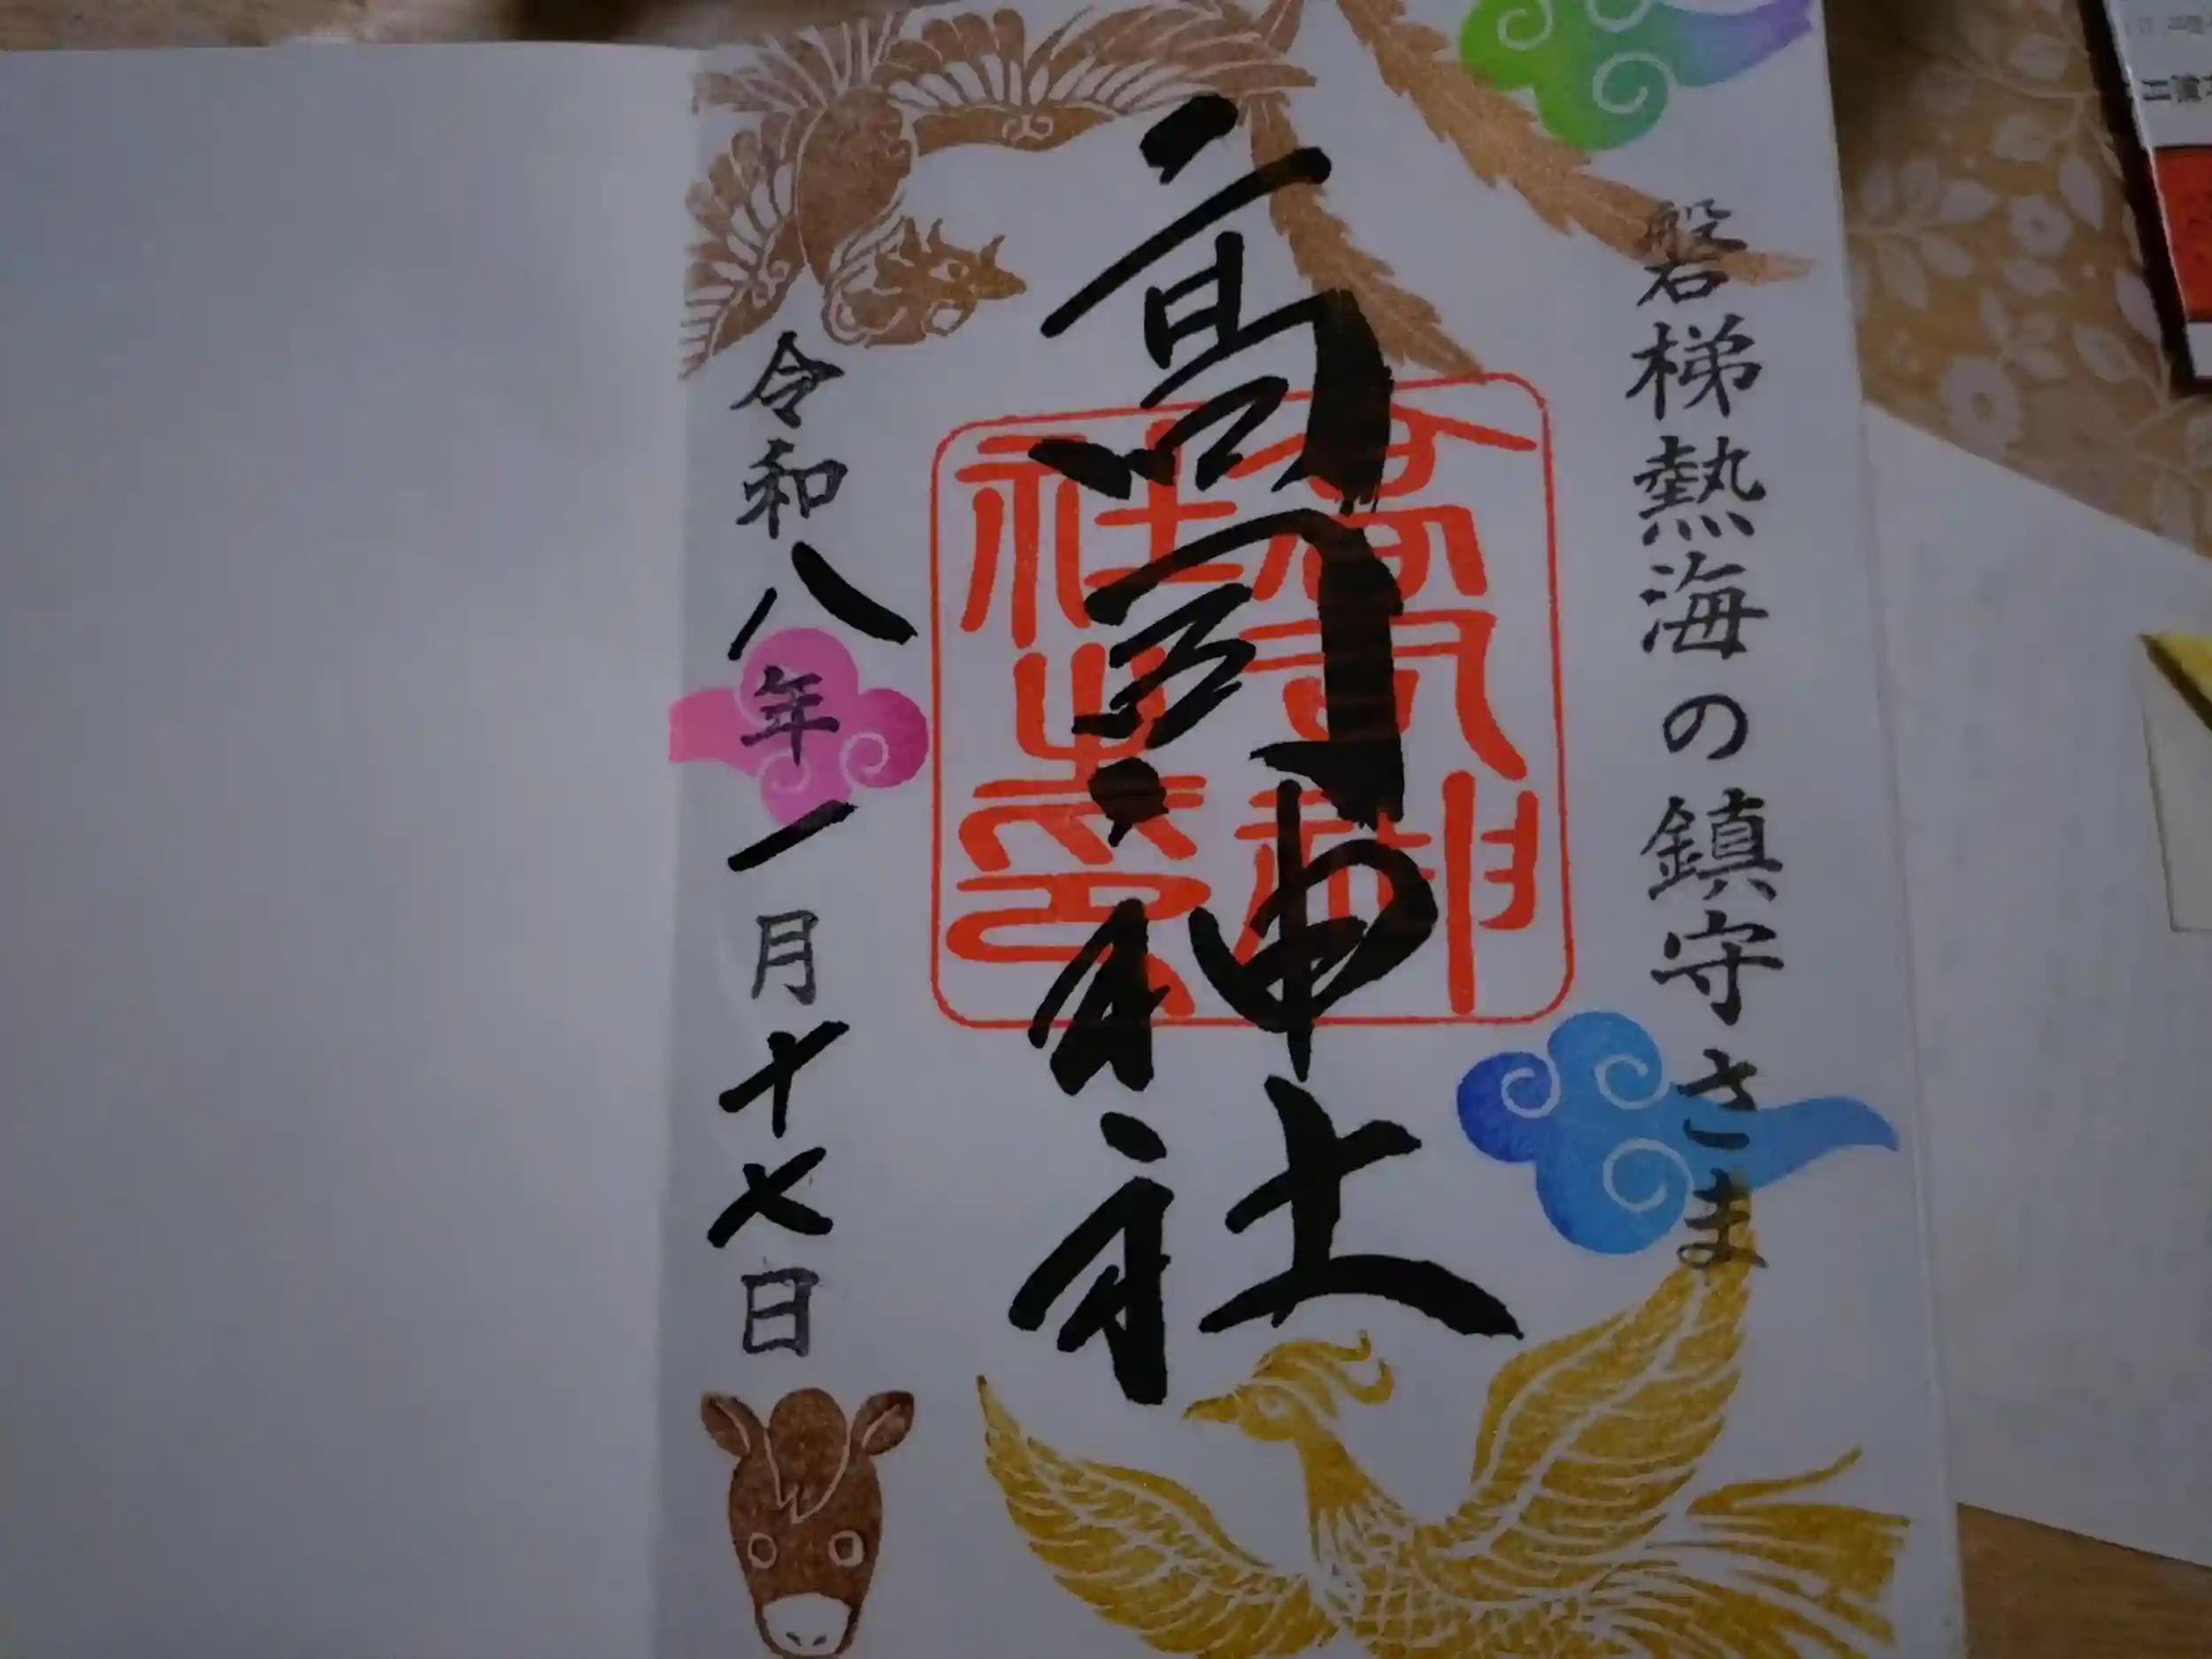 磐梯熱海の鎮守さま
高司神社
高司神社之印
令和八年一月十七日